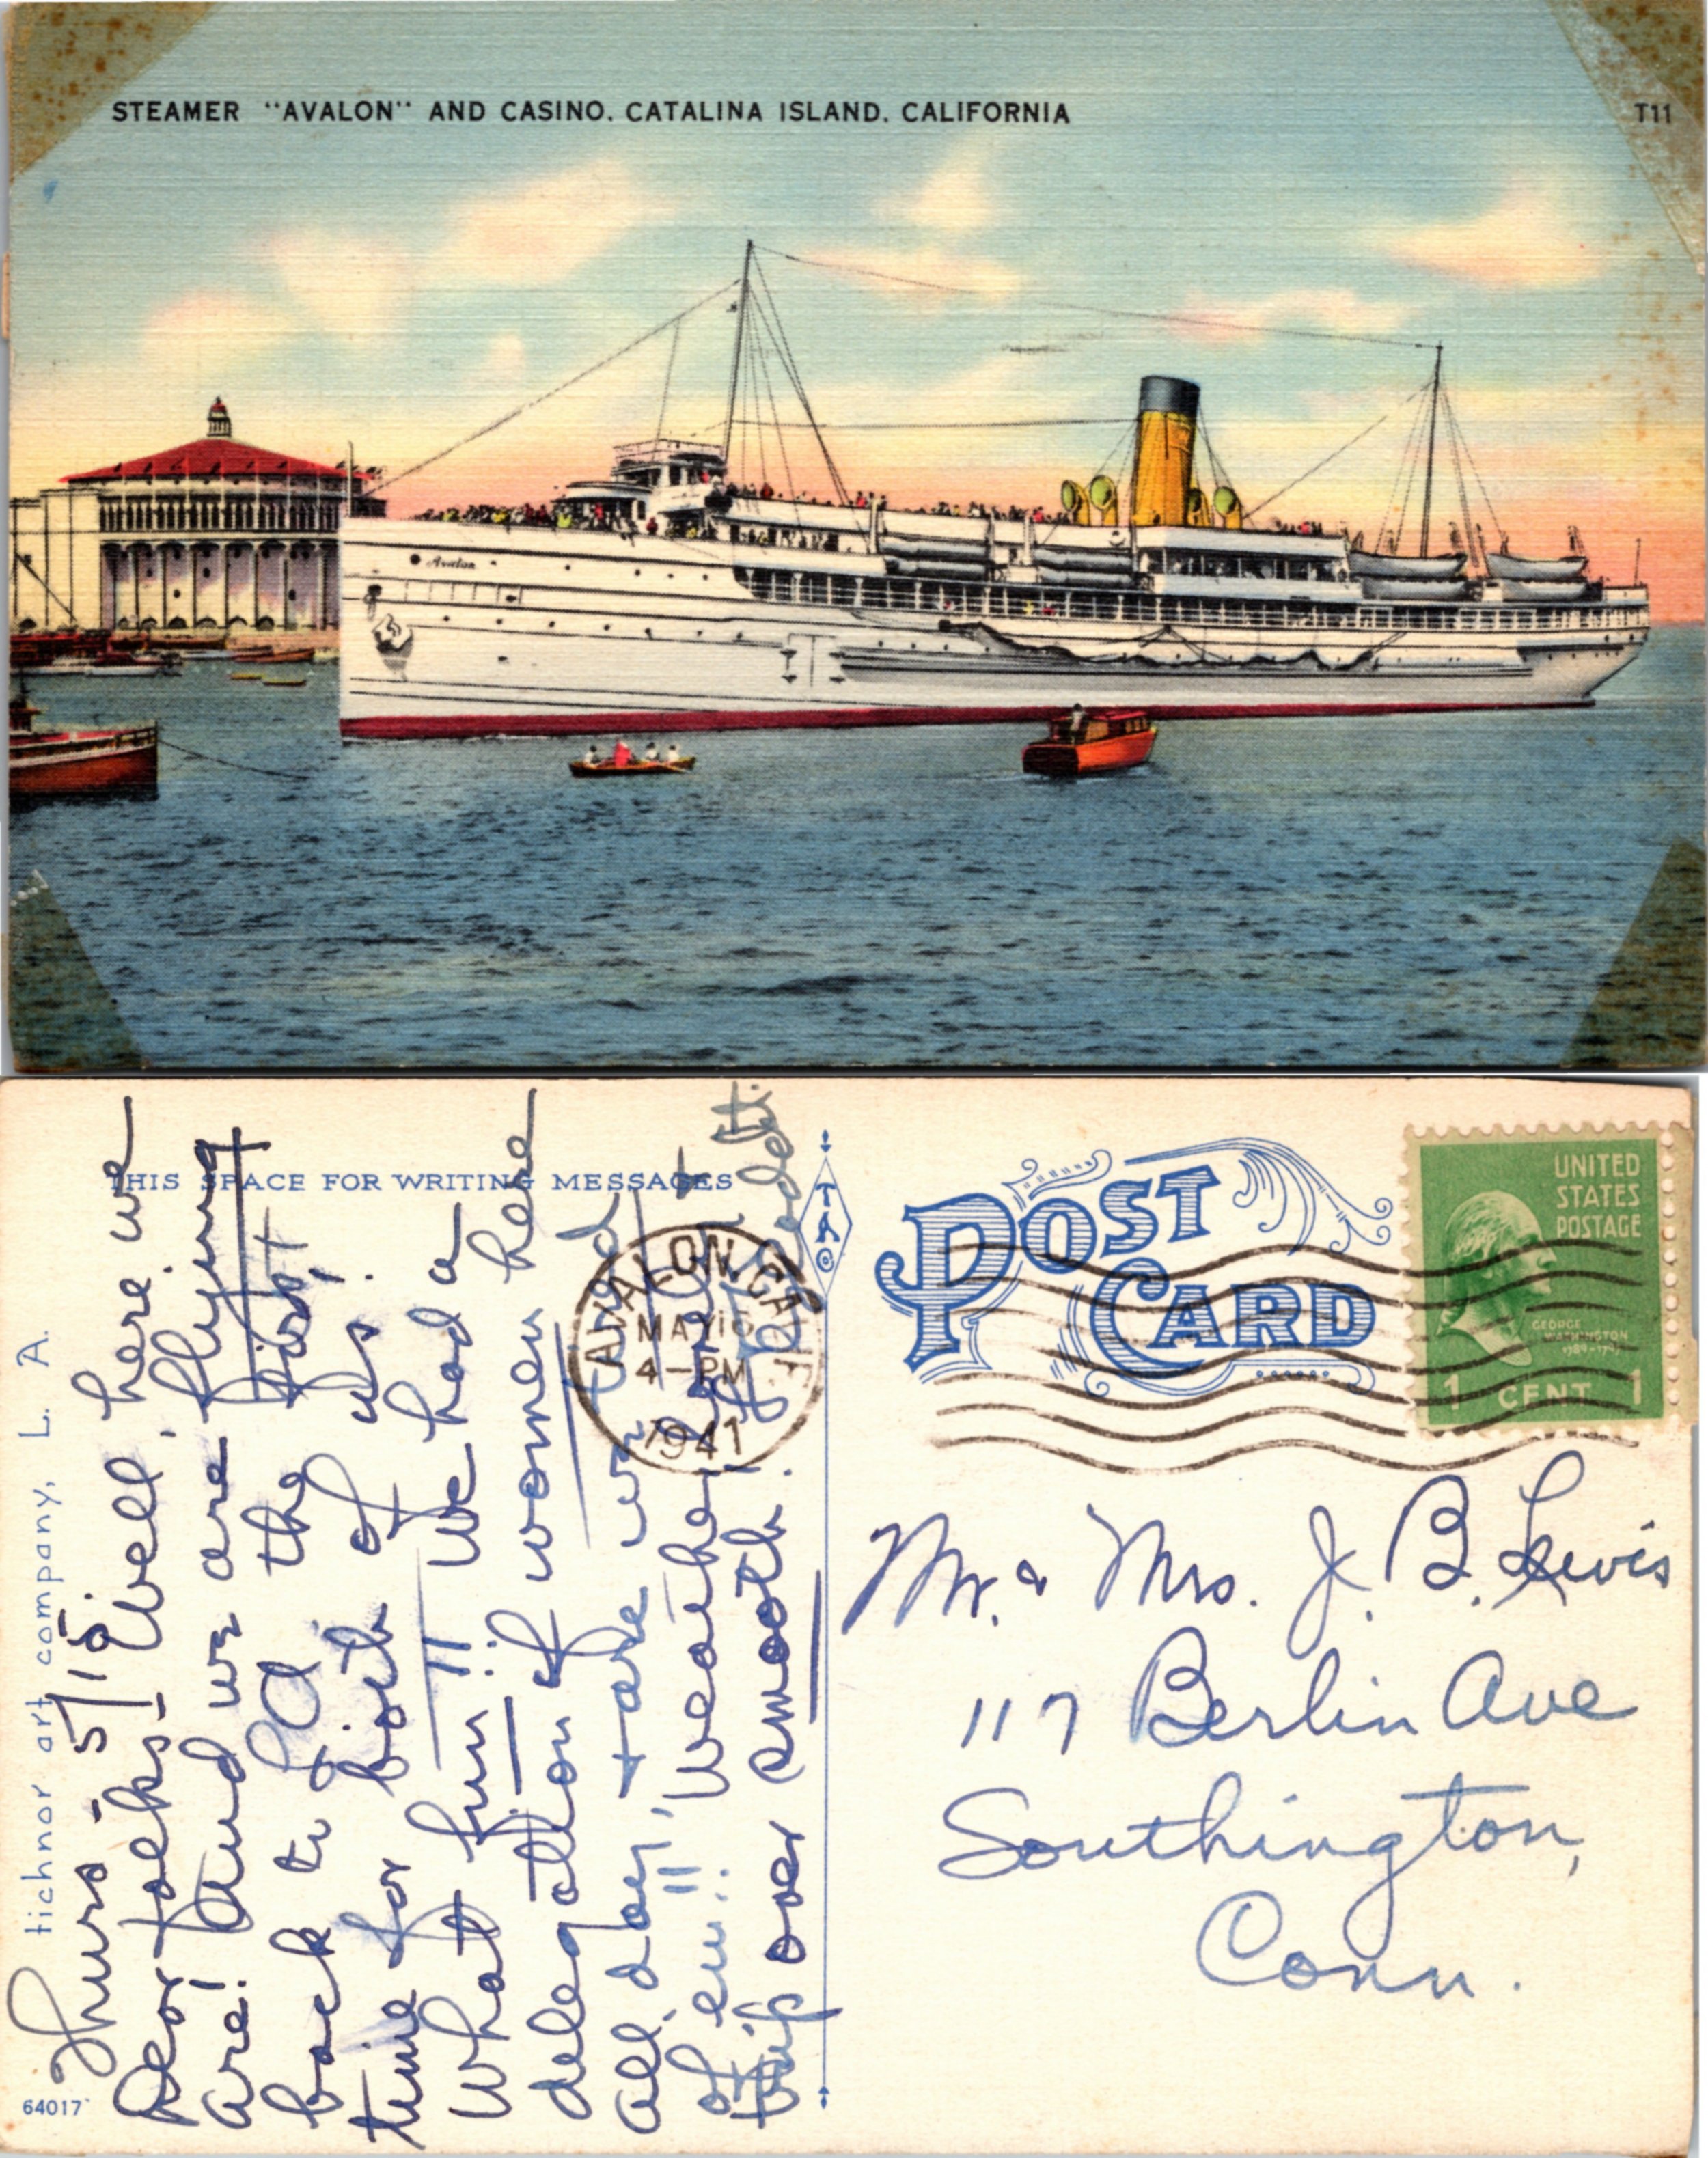 STEAMER "AVALON" AND CASINO, CATALINA ISLAND, CALIFORNIA
T11
Avalon
THIS SPACE FOR WRITING MESSAGES
tichnor art company, L. A.
64017
Thurs - 5/15.
Dear folks - Well, here we
are! And we are flying
back to LA the first
time for both of us.
What fun!! We had a
delegation of women here
all day, + take und
of em!! Weather
trip over smooth.
AVALON, CALIF.
MAY 15
4 - PM
1941
TAC
POST CARD
UNITED
STATES
POSTAGE
GEORGE
WASHINGTON
1789-1797
1 CENT 1
Mr. & Mrs. J. B. Lewis
117 Berlin Ave
Southington,
Conn.